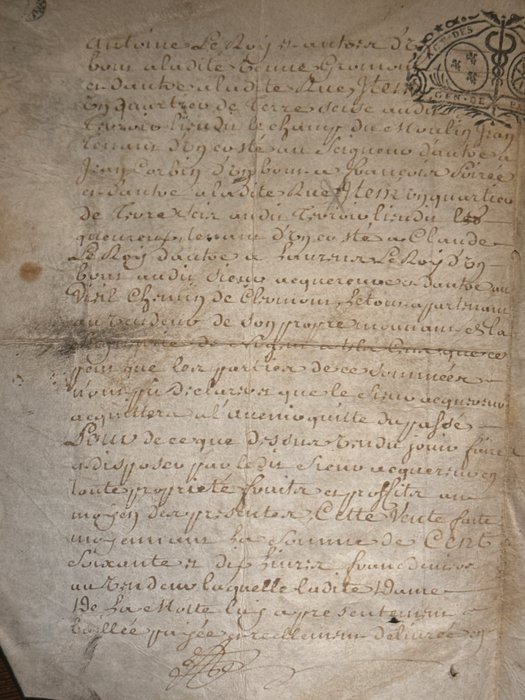 Antoine LeRoy et autres d'un
bout a ladite
et d'autre a ladite Rue Item
Un quartier de Terre scise audit
Terroir lieudit le champ du Moulin Jean
tenant d'un costé au Seigneur d'autre a
Jean Corbin d'un bout a François
et d'autre a ladite Rue Item un quartier
de Terre scis audit Terroir lieudit les
tenant d'un costé a Claude
Le Roy d'autre a Laurens Le Roy d'un
bout audit sieur acquereur et d'autre au
Vieil Chemin de Clermont Letout apartenant
au vendeur de son propre mouvant et la
de
pour que les parties de ce sommées
n'ont pu declarer que le sieur acquereur
acquittera a l'avenir quitte du passé
Pour de ce que dessus vendu jouir faire
et disposer par ledit sieur acquereur en
toute proprieté fruits et proffits au
moyen des presentes, Cette Vente faite
moyennant la somme de Cent
soixante et dix livres francs deniers
au vendeur laquelle ladite Dame
De La Motte luy a presentement
baillée payée reellement delivrée en
ACT. DES
GEN. DE